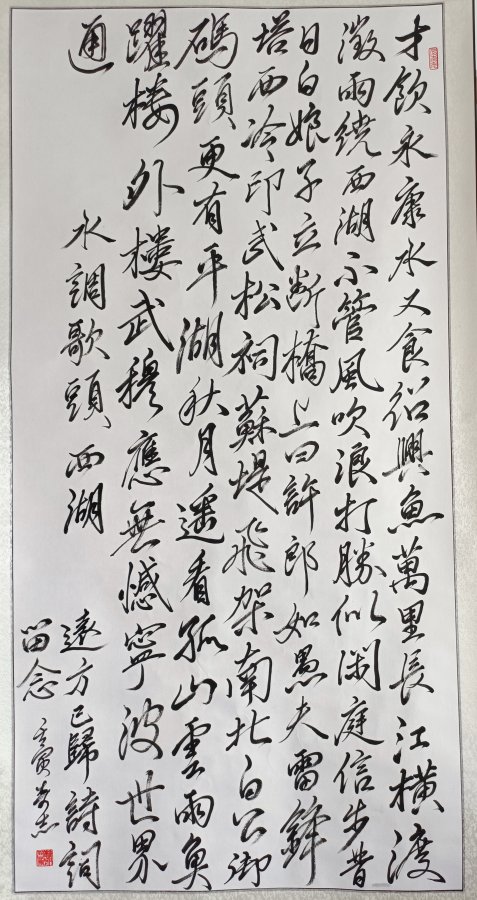 才飲永康水又食紹興魚萬里長江橫渡
微雨繞西湖不管風吹浪打勝似閑庭信步昔
日白娘子立斷橋上曰許郎如愚夫雷鋒
塔西冷印武松祠蘇堤飛架南北白公御
碼頭更有平湖秋月遥看孤山雲雨興
躍樓外樓武穆應無憾寧波世界
通
水調歌頭西湖
遠方已歸詩詞
留念
壬寅